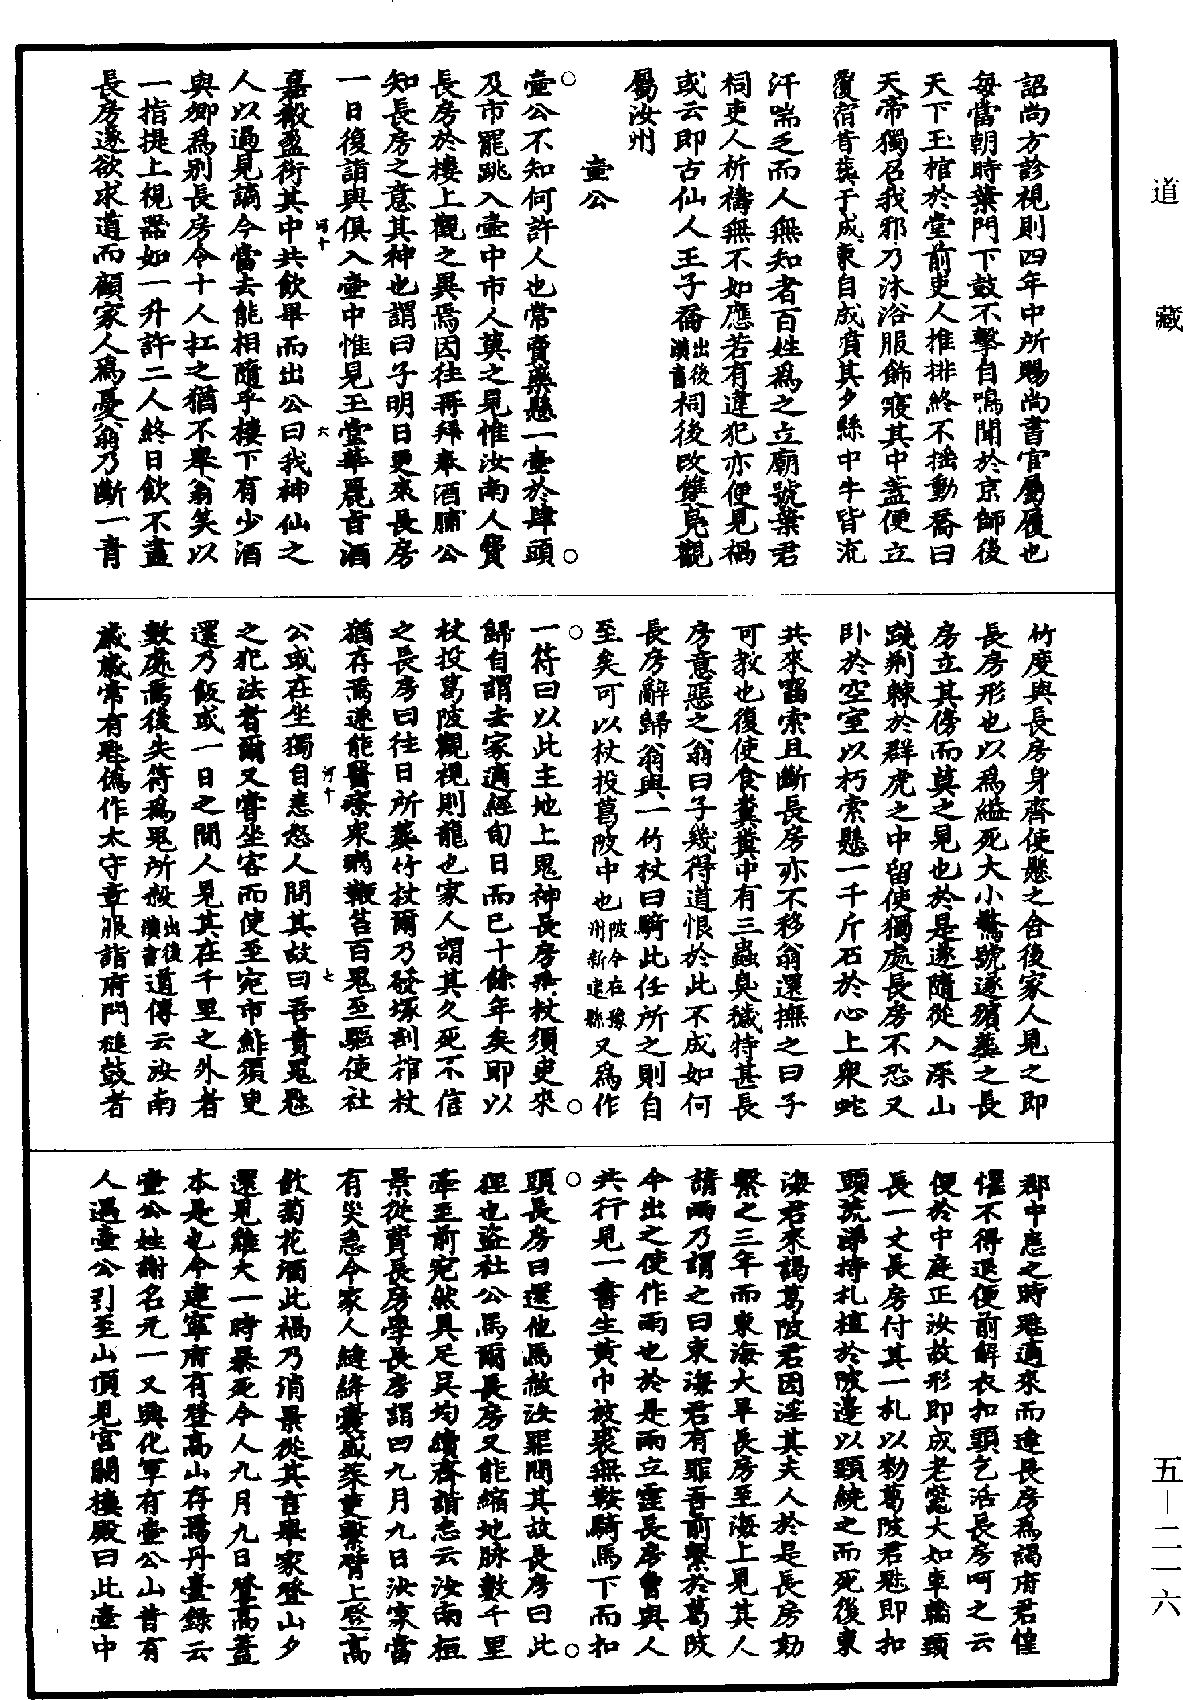 道藏
詔尚方診視則四年中所賜尚書官屬履也
每當朝時葉門下鼓不擊自鳴聞於京師後
天下玉棺於堂前吏人推排終不搖動喬曰
天帝獨召我邪乃沐浴服飾寢其中蓋便立
覆宿昔葬于城東自成墳其夕縣中牛皆流
汗喘乏而人無知者百姓為之立廟號葉君
祠吏人祈禱無不如應若有違犯亦便見禍
或云即古仙人王子喬出後漢書祠後改雙鳧觀
屬汝州
壺公
壺公不知何許人也常賣藥懸一壺於肆頭
及市罷跳入壺中市人莫之見惟汝南人費
長房於樓上觀之異焉因往再拜奉酒脯公
知長房之意其神也謂曰子明日更來長房
一日復詣與俱入壺中惟見玉堂華麗旨酒
嘉殽盈衍其中共飲畢而出公曰我神仙之
人以過見謫今當去能相隨乎樓下有少酒
與卿為別長房令十人扛之猶不舉翁笑以
一指提上視器如一升許二人終日飲不盡
長房遂欲求道而顧家人為憂翁乃斷一青
竹度與長房身齊使懸之舍後家人見之即
長房形也以為縊死大小驚號遂殯葬之長
房立其傍而莫之見也於是遂隨從入深山
踐荊棘於群虎之中留使獨處長房不恐又
臥於空室以朽索懸一千斤石於心上眾蛇
共來齧索且斷長房亦不移翁還撫之曰子
可教也復使食糞糞中有三蟲臭穢特甚長
房意惡之翁曰子幾得道恨於此不成如何
長房辭歸翁與一竹杖曰騎此任所之則自
至矣可以杖投葛陂中也陂今在豫州新建縣又為作
一符曰以此主地上鬼神長房乘杖須臾來
歸自謂去家適經旬日而已十餘年矣即以
杖投葛陂觀視則龍也家人謂其久死不信
之長房曰往日所葬竹杖爾乃發塚剖棺杖
猶存焉遂能醫療眾病鞭笞百鬼至驅使社
公或在坐獨自恚怒人問其故曰吾責鬼魅
之犯法者爾又嘗坐客而使至宛市鮓須臾
還乃飯或一日之間人見其在千里之外者
數處焉後失符為鬼所殺出後漢書道傳云汝南
歲歲常有魅偽作太守章服詣府門槌鼓者
郡中患之時魅適來而逢長房為謁府君惶
懼不得退便前解衣扣頭乞活長房呵之云
便於中庭正汝故形即成老鼈大如車輪頸
長一丈長房付其一札以勑葛陂君魅即扣
頭流涕持札植於陂邊以頸繞之而死後東
海君來謁葛陂君因淫其夫人於是長房劾
繫之三年而東海大旱長房至海上見其人
請雨乃謂之曰東海君有罪吾前繫於葛陂
今出之使作雨也於是雨立霔長房曾與人
共行見一書生黃巾被裘無鞍騎馬下而扣
頭長房曰還他馬赦汝罪問其故長房曰此
狸也盜社公馬爾長房又能縮地脉數千里
牽至前宛然具足吳均續齊諧志云汝南桓
景從費長房學長房謂曰九月九日汝家當
有災急令家人縫絳囊盛茱萸繫臂上登高
飲菊花酒此禍乃消景從其言舉家登山夕
還見雞犬一時暴死今人九月九日登高蓋
本是也今建寧府有登高山存焉丹臺錄云
壺公姓謝名元一又興化軍有壺公山昔有
人遇壺公引至山頂見宮闕樓殿曰此壺中
河十
六
河十
七
五—二一六